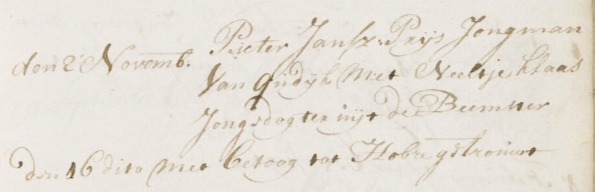 den 2 Novemb: Pieter Jansz: Prijs Jongman
Van Met Neeltje Klaas
Jongedogter uijt de Beemster
den 16 dito Met betoog tot getrouwt